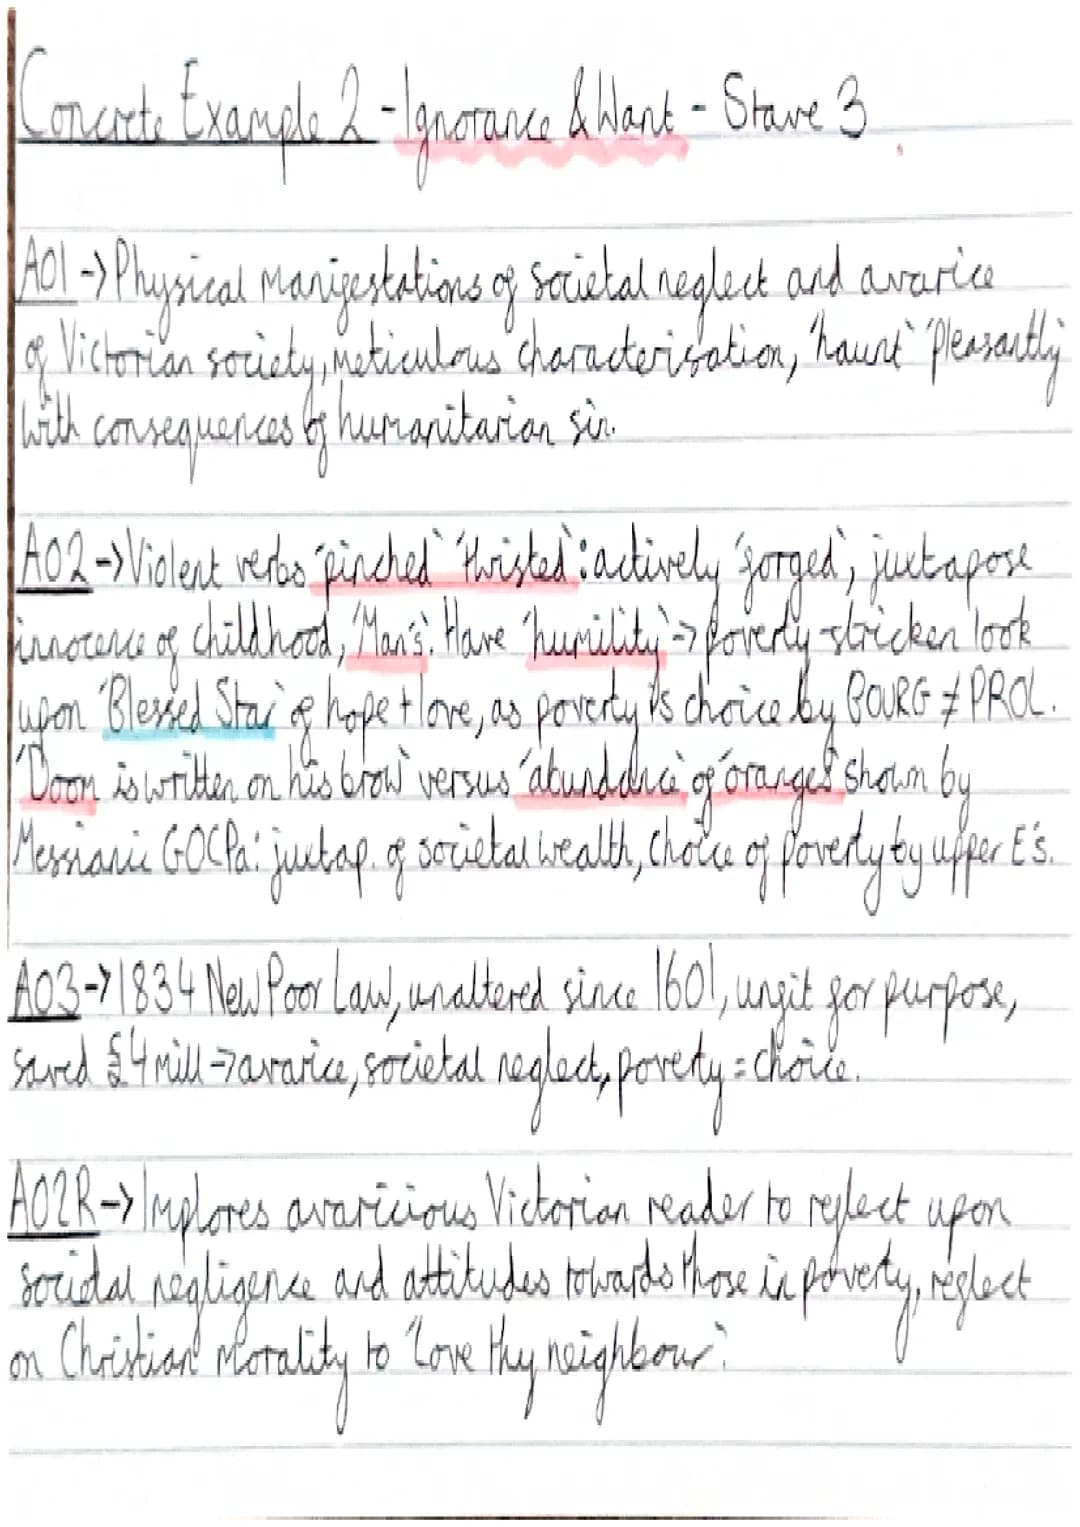 Concrete Example 2 - Ignorance & Want - Stave 3
AO1 -> Physical manifestations of societal neglect and avarice
of Victorian society, meticulous characterisation, 'haunt' 'pleasantly'
with consequences of humanitarian sin.
AO2 -> Violent verbs 'pinched' 'twisted': actively 'forged', juxtapose
innocence of childhood, 'Man's'. Have 'humility' -> poverty-stricken look
upon 'Blessed Star' of hope + love, as poverty is choice by BOURG ≠ PROL.
'Doom is written on his brow' versus 'abundance' of 'oranges' shown by
Messianic GOCPa: juxtap. of societal wealth, choice of poverty by upper E's.
AO3 -> 1834 New Poor Law, unaltered since 1601, unfit for purpose,
saved £4 mill -> avarice, societal neglect, poverty = choice.
AO2R -> Implores avaricious Victorian reader to reflect upon
societal negligence and attitudes towards those in poverty, reflect
on Christian Morality to 'love thy neighbour'.